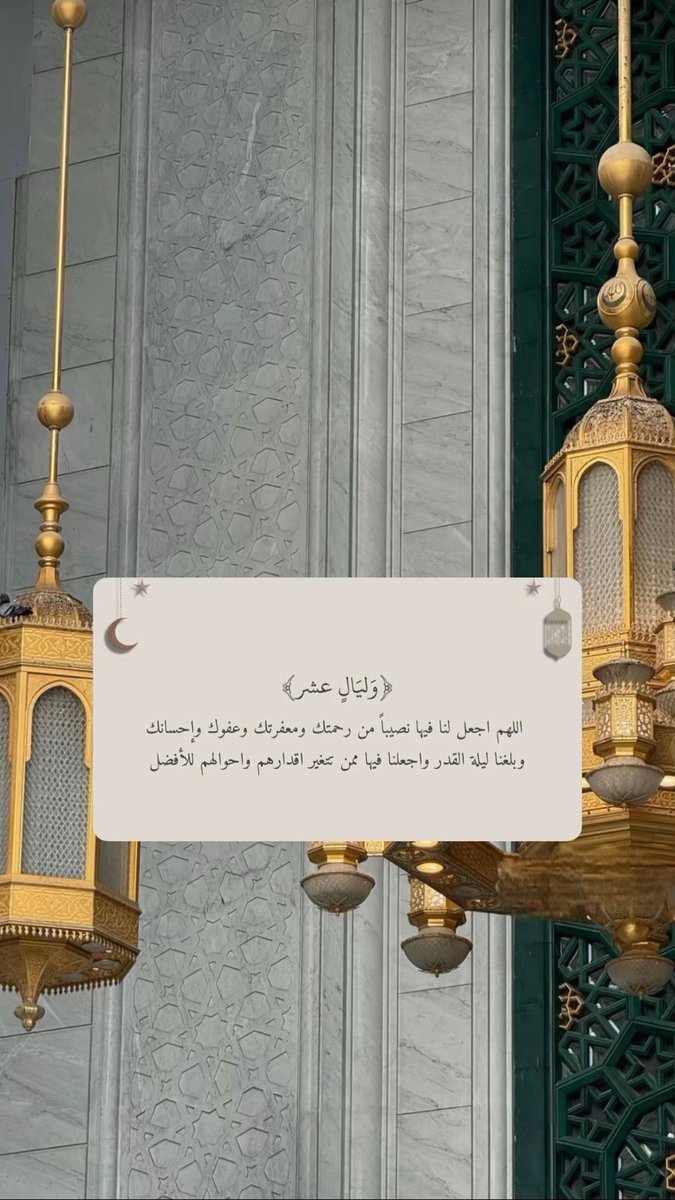 ﴿وَليَالٍ عشر﴾
اللهم اجعل لنا فيها نصيباً من رحمتك ومعفرتك وعفوك وإحسانك
وبلغنا ليلة القدر واجعلنا فيها ممن تتغير اقدارهم واحوالهم للأفضل